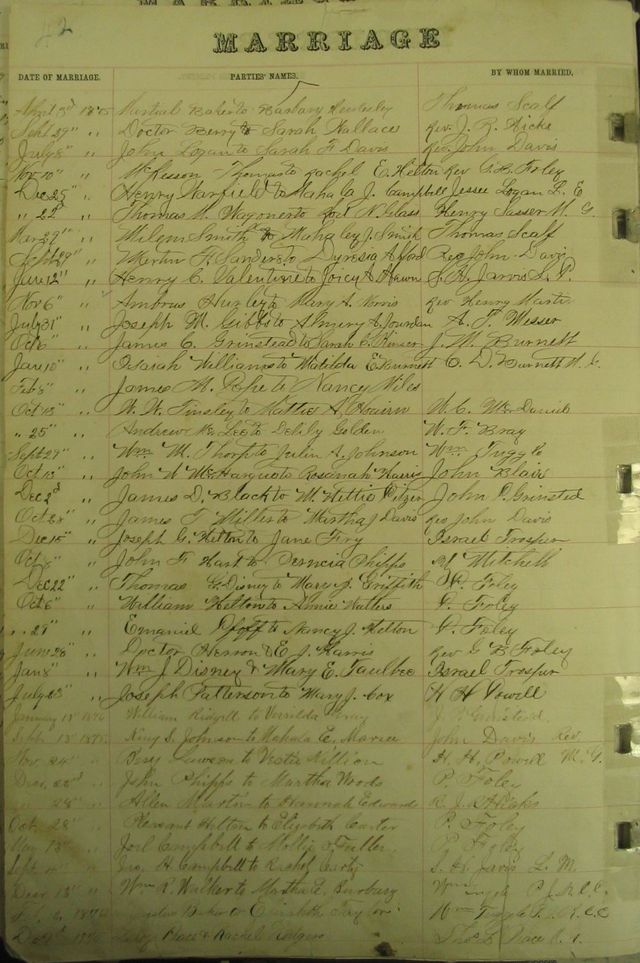 MARRIAGE
DATE OF MARRIAGE. PARTIES' NAMES. BY WHOM MARRIED.
April 3d 1875 Martial Baker to Barbary Thomas Scalf
Sept 29" " Doctor Berry to Sarah Wallace Rev. J. R. Hicks
July 8" " John Logan to Sarah F. Davis Rev John Davis
Nov 10" " Thomas to Rachel E. Helton Rev G. B. Foley
Dec 25" " Henry Warfield to Mahala J. Campbell Jessee Logan L. E
" 22" " Thomas M. Wagoner to N. Glass Henry Sasser M. G.
Mar 29" " Milem Smith to Mahaley J. Smith Thomas Scalf
" Martin F. Sanders to Alford Rev John Davis
June 12" " Henry C. Valentine to Joicy A S. H. Jarvis L. P.
Nov 6" " Ambrus Hurley to Mary A. Norris Rev Henry Martin
July 31" " Joseph M. Gibbs to Almira A. Jourdan A. T. Messer
Oct 6" " James C. Grinstead to Sarah E. J. M. Burnett
Jan 10" " Isaiah Williams to Matilda E Burnett C. D. Burnett M. G.
Feb 8" " James M. to Nancy Miles
Oct 13" " W. W. Tinsley to Mattie A. W. C. McDaniel
" 25" " Andrew McLee to Golden W. F. Bray
Sept 27" " Wm M. Thorp to Julia A. Johnson Wm Tuggle
Oct 13" " John W McHargue to Rosanah Harris John Blair
Dec 2d " James D. Black to M Nettie Pitzer John P. Grinsted
Oct 28" " James T. Miller to Martha J Davis Rev John Davis
Dec 15" " Joseph G. Helton to Jane Fry Israel Trosper
Oct " John F. Hart to Phipps Mitchell
Dec 22" " Thomas G. Disney to Mary J. Griffith P. Foley
Oct 6" " William Helton to Annie Walters P. Foley
" 27" " Emaniel to Nancy J. Helton P. Foley
June 28" " Doctor Hernon & E. J. Harris Rev G B Foley
Jan 8" " Wm J Disney & Mary E. Faulbee Israel Trosper
July 23" " Joseph Patterson to Mary J. Cox H H Powell
January 13" 1876 William Ridgill to J. P. Grinstead
Sept 13" 1875 King S. Johnson to Mahala E. John Davis Rev
Nov. 24" " Lawson to Million H. H. Powell M. G.
Dec. 22d " John Phipps to Martha Woods P. Foley
" 28" " Allen Martin to Hannah Edwards R. J. Hicks
Oct 28" " Pleasant Helton to Elizabeth Carter P. Foley
May 13" " Joel Campbell to Mollie Fuller P. Foley
Sept " H. Campbell to Rachel S. H. Jarvis L. M.
13" " Wm R. Walker to Martha L. Wm P. J. K. C. C.
1876 Baker to Elizabeth Taylor Wm K. C. C
& Rachel Rodgers